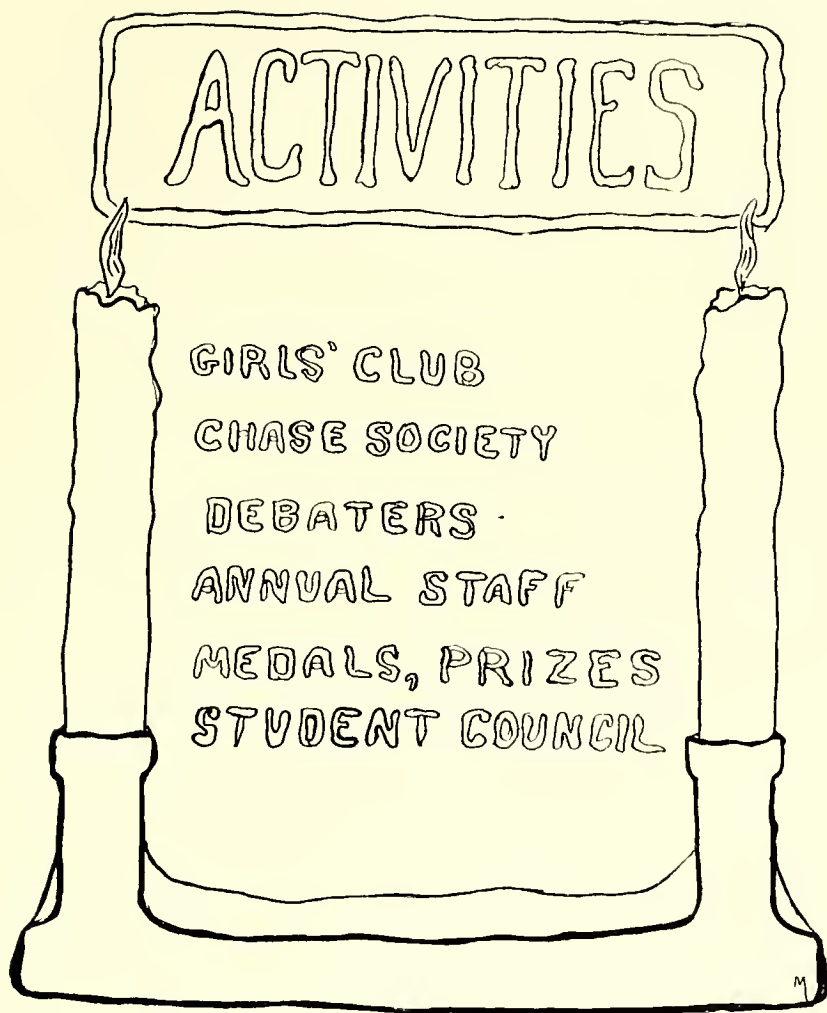 ACTIVITIES
GIRLS' CLUB
CHASE SOCIETY
DEBATERS
ANNUAL STAFF
MEDALS, PRIZES
STUDENT COUNCIL
M